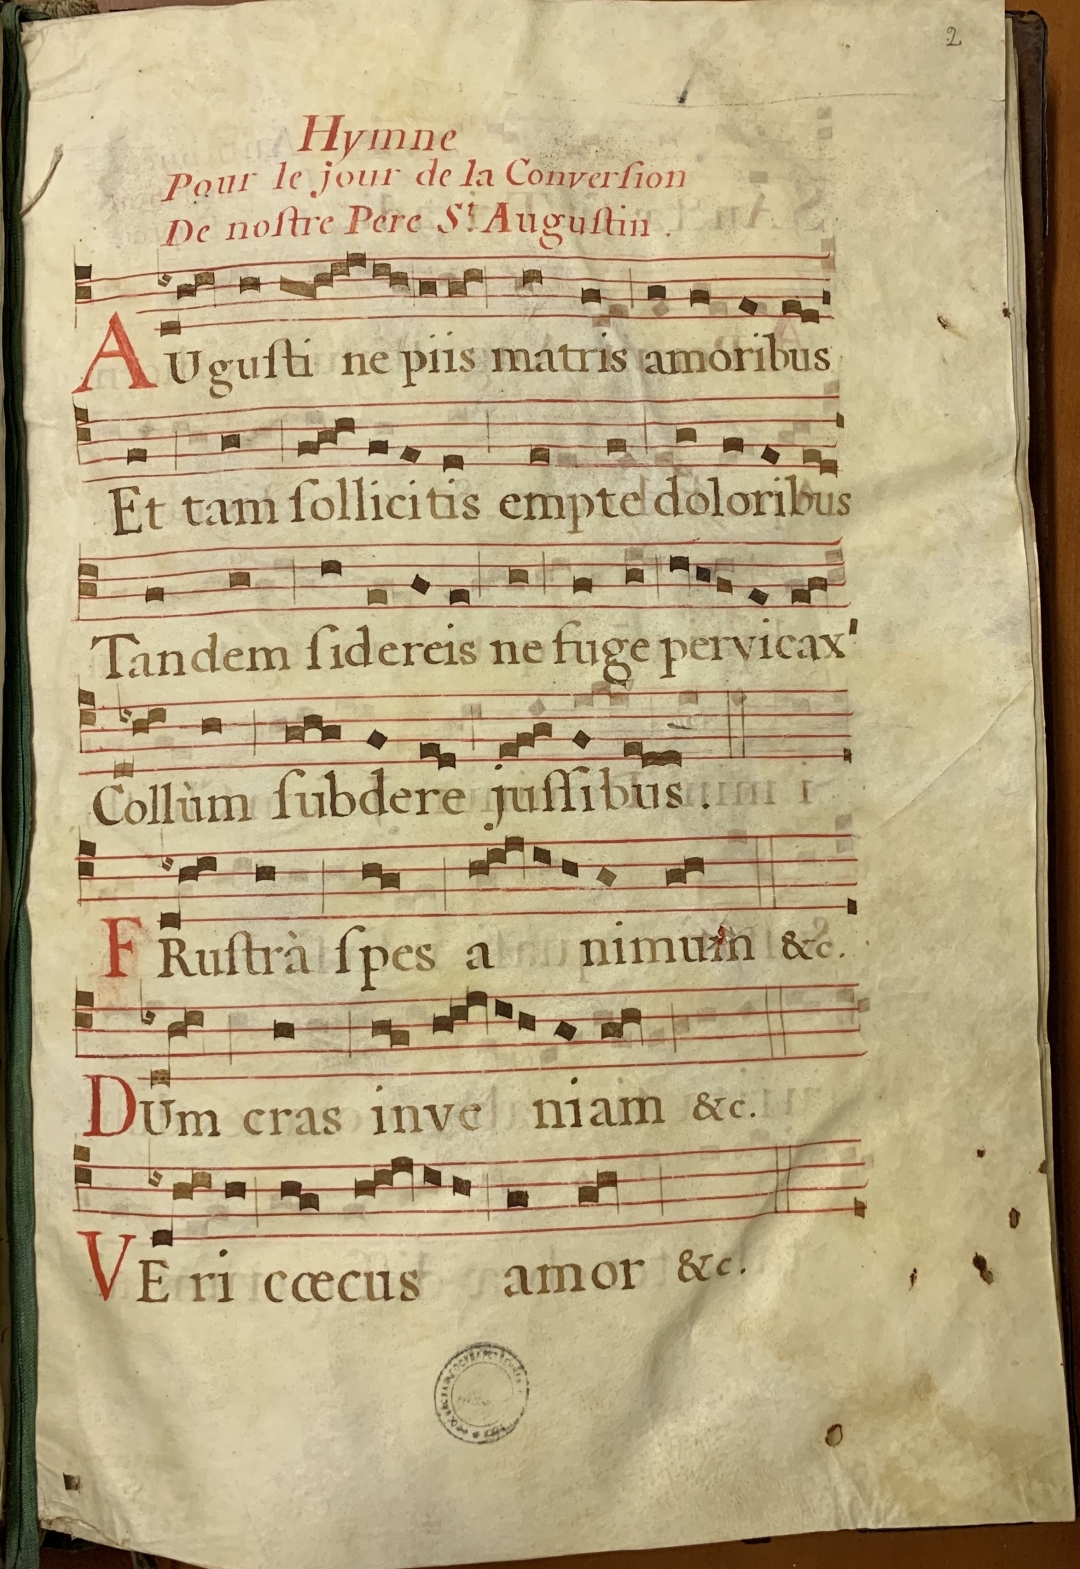 2
Hymne
Pour le jour de la Converſion
De noſtre Pere S.t Auguſtin.
AUguſti ne piis matris amoribus
Et tam ſollicitis empte doloribus
Tandem ſidereis ne fuge pervicax
Collùm ſubdere juſſibus.
FRuſtrà ſpes a nimum &c.
DUm cras inve niam &c.
VE ri cœcus amor &c.